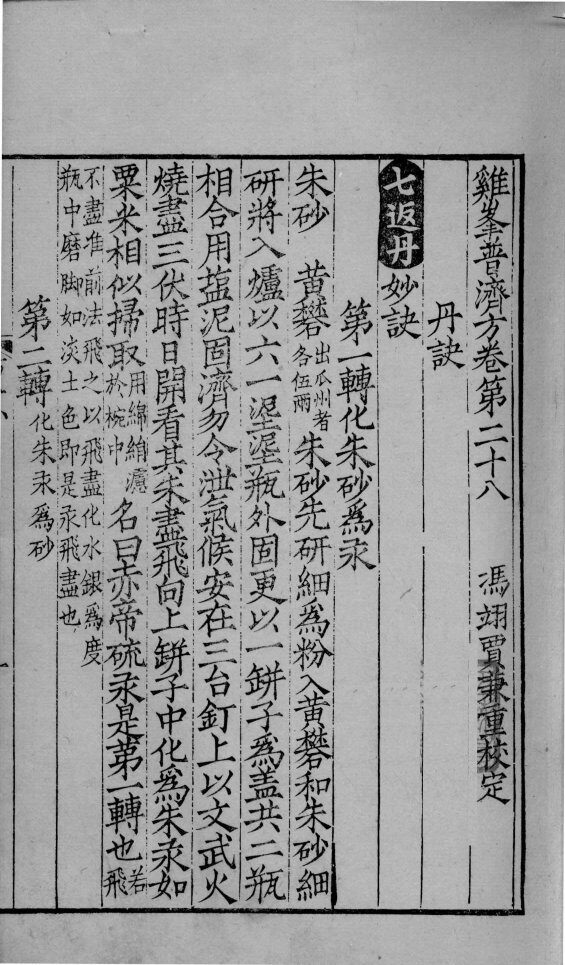 雞峯普濟方卷第二十八　馮翊賈兼重校定
丹訣
七返丹妙訣
第一轉化朱砂爲汞
朱砂　黃礬出瓜州者各伍兩　朱砂先研細爲粉入黃礬和朱砂細
研將入爐以六一埿埿瓶外固更以一缾子爲盖共二瓶
相合用塩泥固濟勿令泄氣候安在三台釘上以文武火
燒盡三伏時日開看其朱盡飛向上缾子中化爲朱汞如
粟米相似掃取用綿綃濾於椀中　名曰赤帝硫汞是第一轉也若飛
不盡准前法飛之以飛盡化水銀爲度
瓶中磨脚如淡土色即是汞飛盡也
第二轉化朱汞爲砂